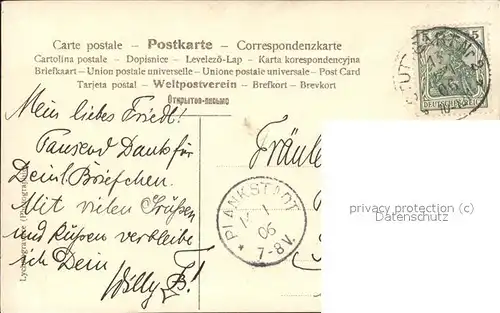 Carte postale - Postkarte - Correspondenzkarte
Cartolina postale - Dopisnice - Levelező-Lap - Karta korespondencyjna
Briefkaart - Union postale universelle - Unione postale universale - Post Card
Tarjeta postal - Weltpostverein - Brefkort - Brevkort
Открытое-письмо
5
DEUTSCHES REICH
06
Mein liebes Friedl!
Tausend Dank für
Deine Briefchen.
Mit vielen Grüßen
und Küssen verbleibe
ich Dein
Willy
Fräule
PLANKSTADT
06
7-8V.
privacy protection (c)
Datenschutz